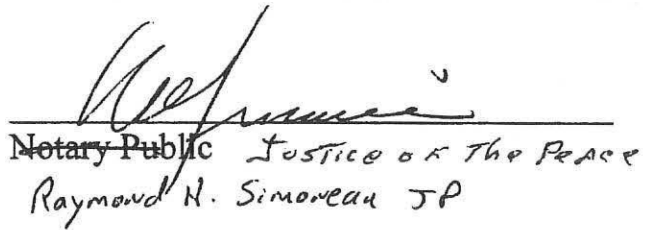 Notary Public Justice of The Peace
Raymond H. Simoneau JP